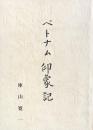 ベトナム印象記
陳山寛一